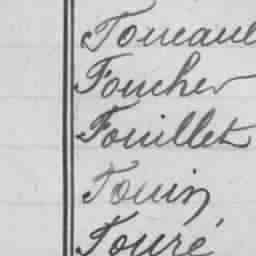 Foucaul
Foucher
Fouillet
Fouin
Fouré